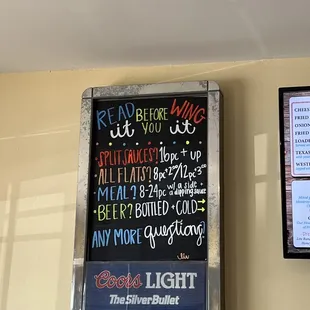 READ BEFORE WING
it YOU it
SPLIT SAUCES? 16pc + up
ALL FLATS? 8pc $2 / 12pc $3
MEAL? 8-24pc w/ a side + a dipping sauce
BEER? BOTTLED + COLD
ANY MORE questions?
Coors LIGHT
The Silver Bullet
CHEES
FRIED
ONION
FRIED
LOADE
TEXAS
WESTE